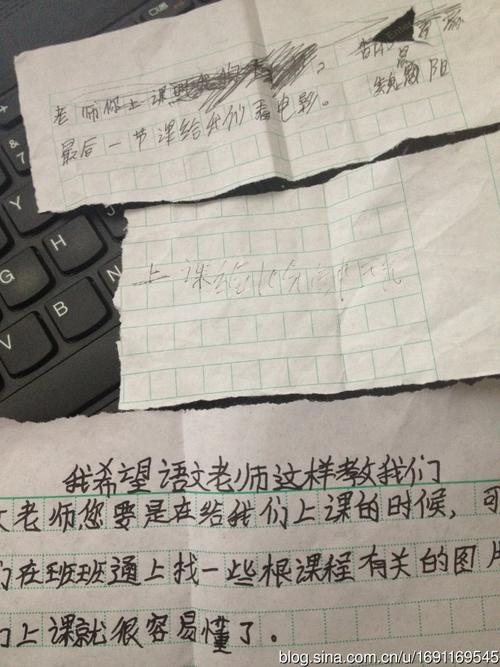 老师你上课
最后一节课给我们看电影。
上课给
我希望语文老师这样教我们
文老师您要是在给我们上课的时候，可
们在班班通上找一些根课程有关的图片
们上课就很容易懂了。
blog.sina.com.cn/u/1691169545